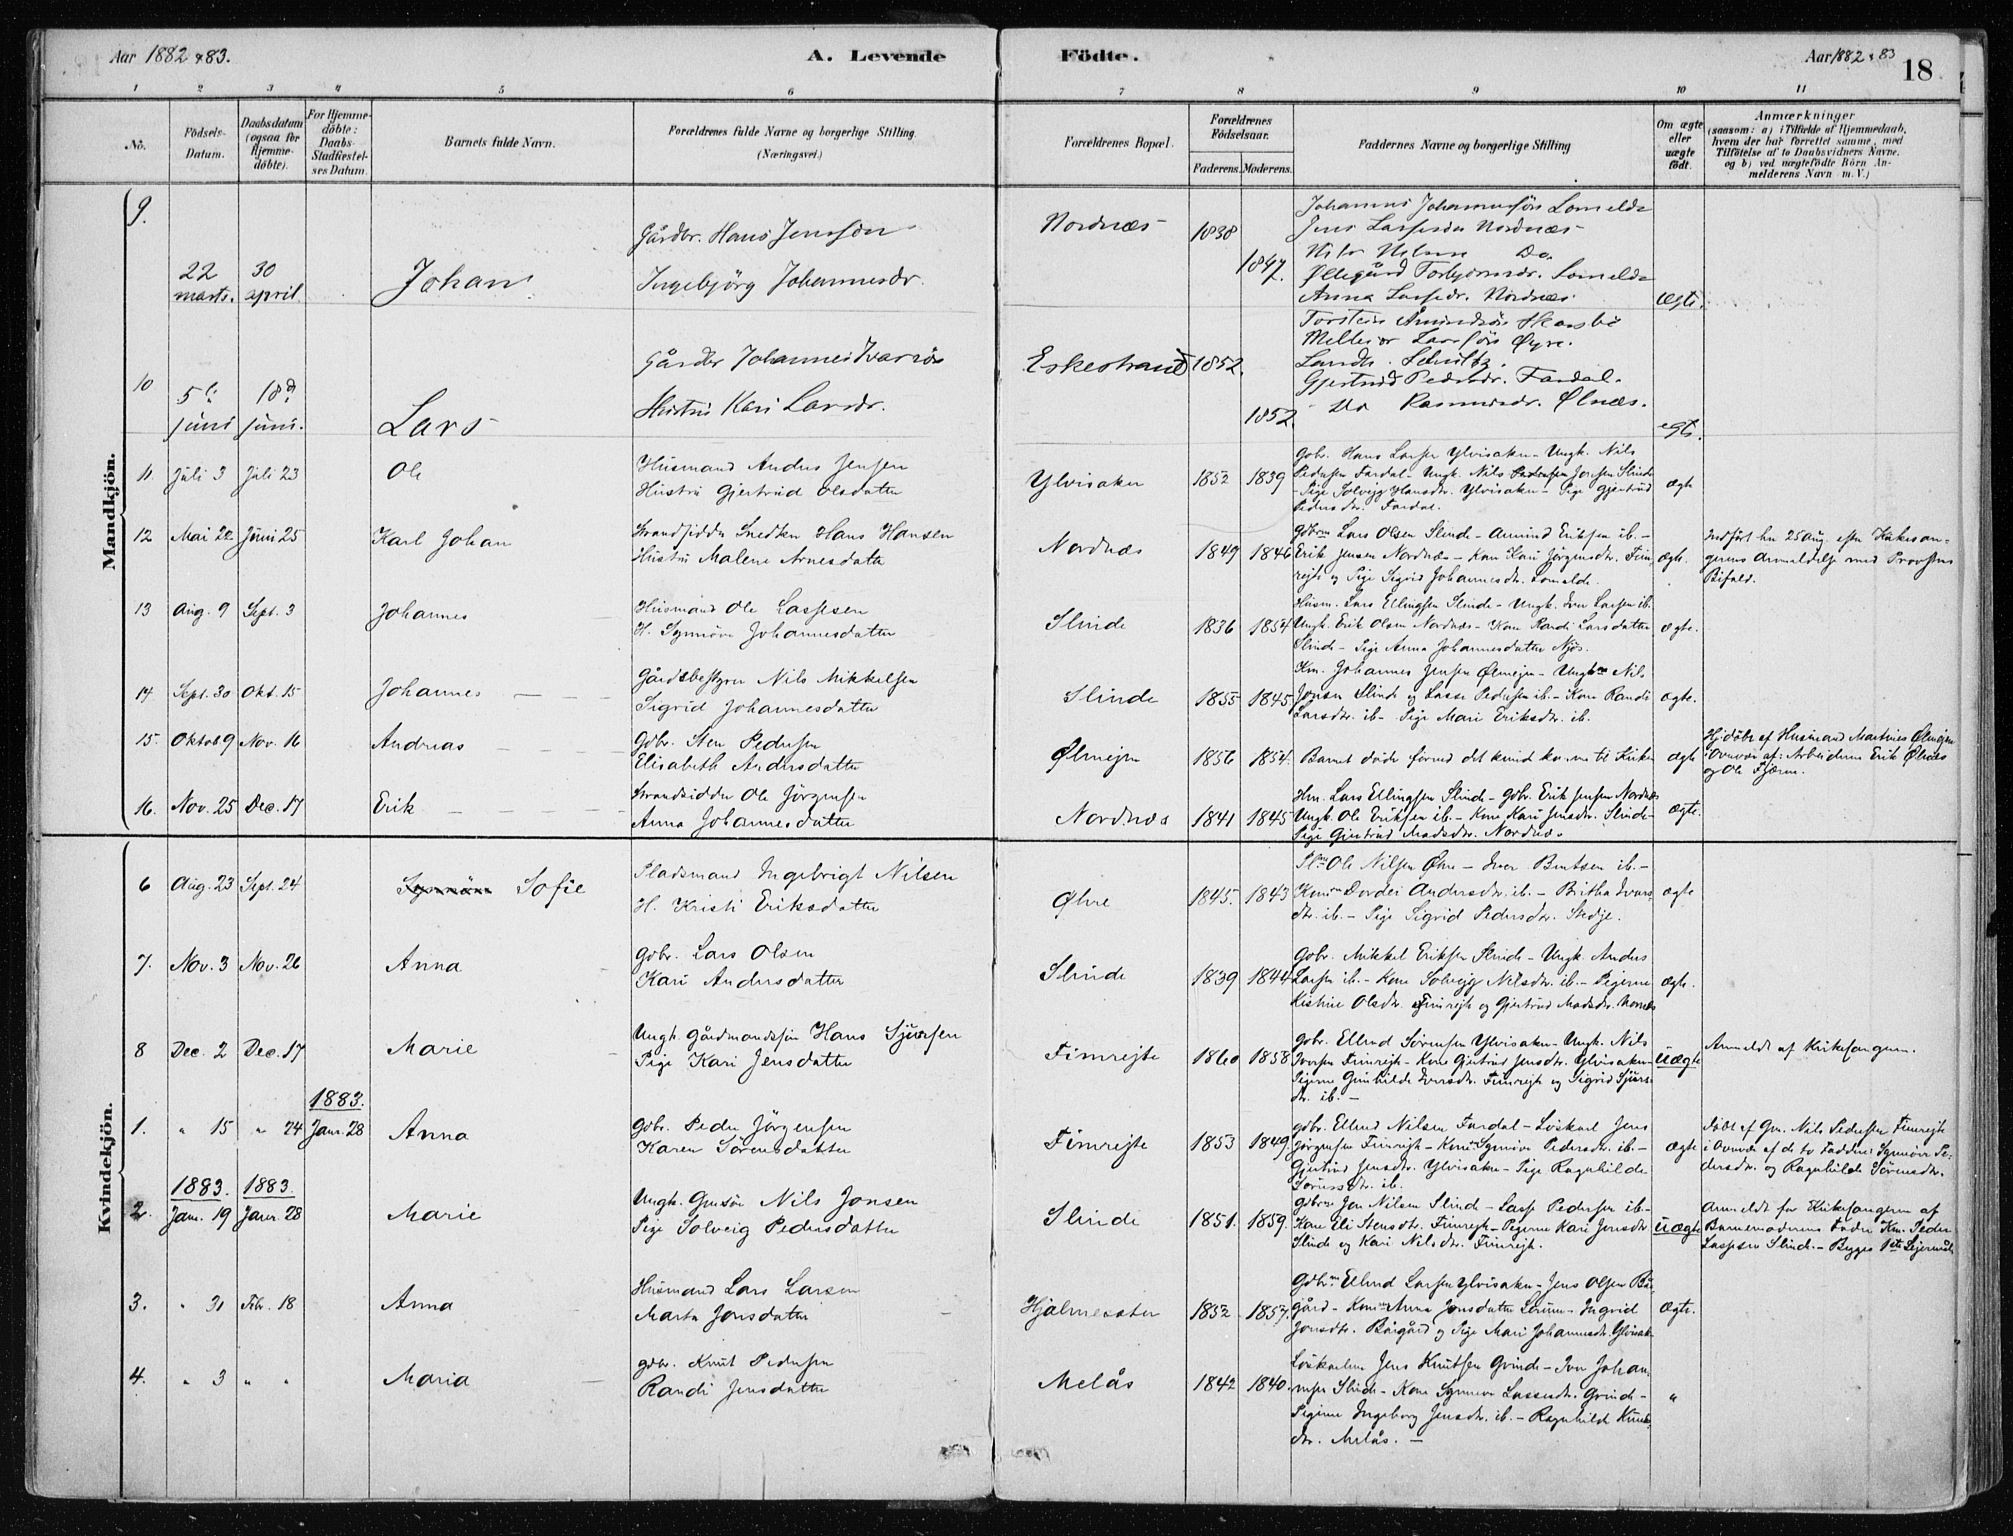 Aar 1882 & 83. A. Levende Födte. Aar 1882 & 83 18
1 2 3 4 5 6 7 8 9 10 11
No. Födsels-Datum. Daabsdatum (ogsaa for Hjemme-döbte). For Hjemme-döbte: Daabs-Stadfæstel-ses Datum. Barnets fulde Navn. Forældrenes fulde Navne og borgerlige Stilling. (Næringsvei.) Forældrenes Bopæl. Forældrenes Födselsaar. Faderens. Moderens. Faddernes Navne og borgerlige Stilling Om ægte eller uægte födt. Anmærkninger
(saasom: a) i Tilfælde af Hjemmedaab,
hvem der har forrettet samme, med
Tilföielse af to Daabsvidners Navne,
og b) ved uægtefödte Börn An-
melderens Navn m. V.)
Mandkjön.
9. Gårdbr. Hans Jensson Nordnæs 1838
Johannes Lomelde
Jens Larssen Nordnæs
22 marts. 30 april Johan Ingebjörg Johannesdr. 1847.
Do.
Øllegård Torbjörnsdr. Lomelde
Anna Lassedr. Nordnæs. Ægte.
10 5te juni 18de juni. Lars Gårdbr Johannes Ivarsön Eskestrand 1852.
Hustru Kari Larsdr. 1852.
Gjertrud Pedersdr. Fardal.
Do Rasmusdr. Ølnæs. ægte.
11. Juli 3 Juli 23 Ole Husmand Anders Jensen
Hustru Gjertrud Olsdatter Ylvisaker 1852 1839
Gbr. Hans Larsen Ylvisaker - Ungk. Nils
Pedersen Fardal - Ungk. Nils Jensen Slinde
- Pige Solveig Hansdtr. Ylvisaker - Pige Gjertrud
Pedersdtr. Fardal. ægte
12 Mai 22 Juni 25 Karl Johan Strandsidder Snedker Hans Hansen
Hustru Malene Arnesdatter Nordnæs 1849 1846
Gdbrne Lars Olsen Slinde - Amund Eriksen ib. -
Erik Jensen Nordnæs - Kone Kari Jörgensdtr. Fim-
rejte og Pige Sigrid Johannesdtr. Lomelde. ægte.
Indfört her 25 Aug. efter Kirkesan-
gerens Anmeldelse med Provstens
Bifald.
13 Aug. 9 Sept. 3 Johannes Husmand Ole Lassesen
H. Synnöve Johannesdatter Slinde 1836 1854
Husm. Lars Ellingsen Slinde - Ungk. Iver Larsen ib.
Ungk. Erik Olsen Nordnæs - Kone Randi Larsdatter
Slinde - Pige Anna Johannesdatter Njös. ægte.
14 Sept. 30 Okt. 15 Johannes Gårdsbestyrer Nils Mikkelsen
Sigrid Johannesdatter Slinde 1855 1845
Km. Johannes Jensen Ølmejm - Ungkne Nils
Jonsen Slinde og Lasse Pedersen ib. - Kone Randi
Larsdtr. ib - Pige Mari Eriksdtr. ib. ægte.
15. Oktob 9 Nov. 16 Andreas Gdbr. Sten Pedersen
Elisabeth Andersdatter Ølmejm 1856 1854.
Barnet döde förend det kunde komme til Kirken ægte
Hjdöbt af Husmand Martinus Ølmejm
i Overvær af: Arbeiderne Erik Ølnæs
og Ole Fjærm.
16. Nov. 25 Dec. 17 Erik Strandsidder Ole Jörgensen
Anna Johannesdatter Nordnæs 1841 1845
Hm. Lars Ellingsen Slinde - Gdbr. Erik Jensen Nordnæs
Ungk. Ole Eriksen ib. - Kone Kari Jensdtr. Slinde -
Pige Gjertrud Madsdtr. Nordnæs ægte.
Kvindekjön.
6 Aug. 23 Sept. 24 Synnöve Sofie Pladsmand Ingebrigt Nilsen
H. Kristi Eriksdatter Øhre 1845. 1843
Plmne Ole Nilsen Øhre - Iver Bentsen ib. -
Konerne Dordei Andersdtr. ib. - Britha Ivers-
dtr. ib. - Pige Sigrid Pedersdtr. Stedje. ægte
7. Nov. 3 Nov. 26 Anna Gdbr. Lars Olsen
Kari Andersdatter Slinde 1839 1844
Gdbr. Mikkel Eriksen Slinde - Ungk. Anders
Larsen ib. - Kone Solveig Nilsdtr. ib. - Pigerne
Kristine Olsdtr. Fimrejte og Gjertrud Madsdtr. Nornes ægte.
8 Dec. 2 Dec. 17 Marie Ungk. Gårdmandssön Hans Sjursen
Pige Kari Jensdatter Fimrejte 1860 1858
Gdbr. Ellend Sörensen Ylvisaker - Ungk. Nils
Iversen Fimrejte - Kone Gjertrud Jensdtr. Ylvisaker -
Pigerne Gunhilde Iversdtr. Fimrejte og Sigrid Sjurs-
dtr. ib. - Uægte
Anmeldt af Kirkesangeren.
1. " 15 " 24 1883. Janr. 28 Anna Gdbr. Peder Jörgensen
Karen Sörensdatter Fimrejte 1853 1849
Gdbr. Ellend Nilsen Fardal - Löskarl Jens
Jörgensen Fimrejte - Kone Synnöve Pedersdtr. ib. -
Gjertrud Jensdtr. Ylvisaker - Pige Ragnhilde
Sörensdtr. ib. ægte
Döbt af Gm. Nils Pedersen Fimrejte
i Overvær af de to Faddere Synnöve Pe-
dersdtr. og Ragnhilde Sörensdtr.
1883. 1883.
2. Jan. 19 Janr. 28 Marie Ungk. Nils Jonsen
Pige Solveig Pedersdatter Slinde 1851. 1859.
Gdbrne Jon Nilsen Slinde - Lasse Pedersen ib. -
Kone Eli Stensdtr. Fimrejte - Pigerne Kari Jensdtr
Slinde og Kari Nilsdtr. Fimrejte. Uægte
Anmeldt for Kirkesangeren af
Barnemoderens Fader Km. Peder
Lassesen Slinde. - Begges 1ste Lejermål
3. " 31 Febr. 18 Anna Husmand Lars Larsen
Marta Jonsdatter Hjalmeseter 1852 1857.
Gdbrne Ellend Larsen Ylvisaker - Jens Olsen Bå-
gård - Konerne Anna Jonsdatter Lerum - Ingrid
Jonsdtr. Bågård og Pige Mari Johannesdtr. Ylvisaker Ægte.
4. " 3 " " Maria Gdbr. Knut Pedersen
Randi Jensdatter Melås 1842 1840.
Löskarlene Jens Knutsen Grinde - Iver Johan-
nesen Slinde - Kone Synneva Lassesdtr. Grinde -
Pigerne Ingeborg Jensdtr. ib. - Ragnhilde Knuts-
dtr. Melås. - "